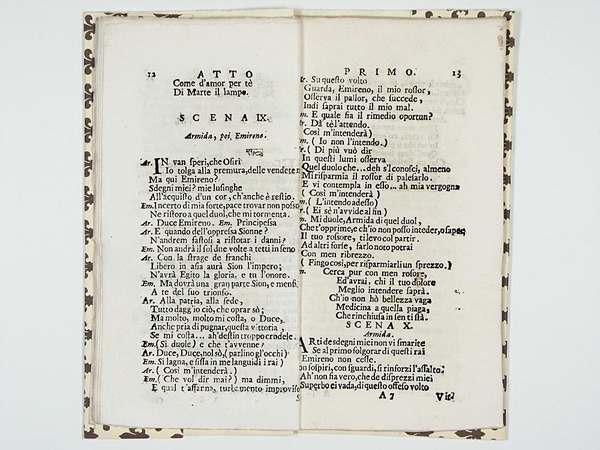 12 ATTO
Come d'amor per tè
Di Marte il lampo.
SCENA IX.
Armida, poi, Emireno.
Ar. IN van speri, che Osiri
Io tolga alla premura, delle vendete m
Ma qui Emireno?
Sdegni miei? mie lusinghe
All'acquisto d'un cor, ch'anche è restio.
Em. Incerto di mia sorte, pace trovar non posso
Ne ristoro a quel duol, che mi tormenta.
Ar. Duce Emireno. Em. Principessa
Ar. E quando dell'oppressa Sionne?
N'andrem fastosi a ristorar i danni?
Em. Non andrà il sol due volte a teti in seno
Ar. Con la strage de franchi
Libero in asia aurà Sion l'impero;
N'avrà Egito la gloria, e tu l'onore.
Em. Ma dovrà una gran parte Sion, e menfi,
A te del suo trionfo.
Ar. Alla patria, alla sede,
Tutto dagg'io ciò, che oprar sò;
Ma molto, molto mi costa, o Duce,
Anche pria di pugnar, questa vittoria,
Se mi costa... ah'destin troppo crudele.
Em. (Si duole) e che t'avvenne?
Ar. Duce, Duce, nol sò, (parlino gl'occhi)
Em. Si lagna, e fissa in me languidi i rai)
Ar. (Così m'intenderà.)
Em. (Che vol dir mai?) ma dimmi,
E qual t'assanna, turbamento improviso
PRIMO. 13
Ar. Su questo volto
Guarda, Emireno, il mio rossor,
Osserva il pallor, che succede,
Indi saprai tutto il mio mal.
m. E quale fia il rimedio oportun?
r. Da tè l'attendo.
Così m'intenderà)
m. (Io non l'intendo.)
r. (Di più vuò dir
In questi lumi osserva
Quel duolo che... deh s'l conosci, almeno
Mi risparmia il rossor di palesarlo.
E vi contempla in esso... ah mia vergogna
(Così m'intenderà)
m. (L'intendo adesso)
r. (Ei sè n'avvide al fin)
m. Mi duole, Armida di quel duol,
Che t'opprime, e ch'io non posso inteder, o sapere;
Il tuo rossore, ti levo col partir.
Ad altri forse, farlo noto potrai
Con men ribrezzo.
(Fingo così, per risparmiarli un sprezzo.)
m. Cerca pur con men rossore,
Ed'avrai, chi il tuo dolore
Meglio intendere saprà.
Ch'io non hò bellezza vaga
Medicina a quella piaga,
Che rinchiusa in sen ti stà.
SCENA X.
Armida.
ARti de sdegni miei non vi smarite
Se al primo folgorar di questi rai
Emireno non cesse.
on sospiri, con sguardi, si rinforzi l'assalto.
Ah'non fia vero, che de disprezzi miei
Superbo ei vada, di questo offeso volto
A 7 Vit-